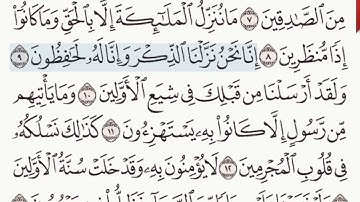 مِنَ ٱلصَّـٰدِقِينَ ٧ مَا نُنَزِّلُ ٱلْمَلَـٰٓئِكَةَ إِلَّا بِٱلْحَقِّ وَمَا كَانُوٓا۟
إِذًا مُّنظَرِينَ ٨ إِنَّا نَحْنُ نَزَّلْنَا ٱلذِّكْرَ وَإِنَّا لَهُۥ لَحَـٰفِظُونَ ٩
وَلَقَدْ أَرْسَلْنَا مِن قَبْلِكَ فِى شِيَعِ ٱلْأَوَّلِينَ ١٠ وَمَا يَأْتِيهِم
مِّن رَّسُولٍ إِلَّا كَانُوا۟ بِهِۦ يَسْتَهْزِءُونَ ١١ كَذَٰلِكَ نَسْلُكُهُۥ
فِى قُلُوبِ ٱلْمُجْرِمِينَ ١٢ لَا يُؤْمِنُونَ بِهِۦ وَقَدْ خَلَتْ سُنَّةُ ٱلْأَوَّلِينَ